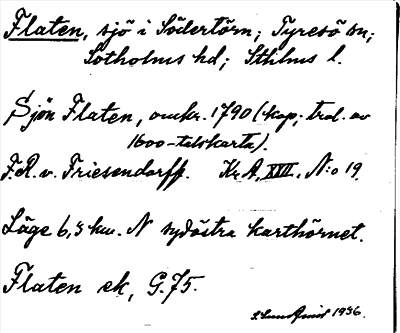 Flaten, sjö i Södertörn; Tyresö sn;
Sotholms hd; Sthlms l.
Sjön Flaten, omkr. 1790 (kop; trol. av
1600-talskarta).
F.R. v. Friesendorff. Kr.A, XVII, N:o 19.
Läge 6,3 km. N sydöstra karthörnet.
Flaten ek, G.75.
S. Lundqvist 1936.